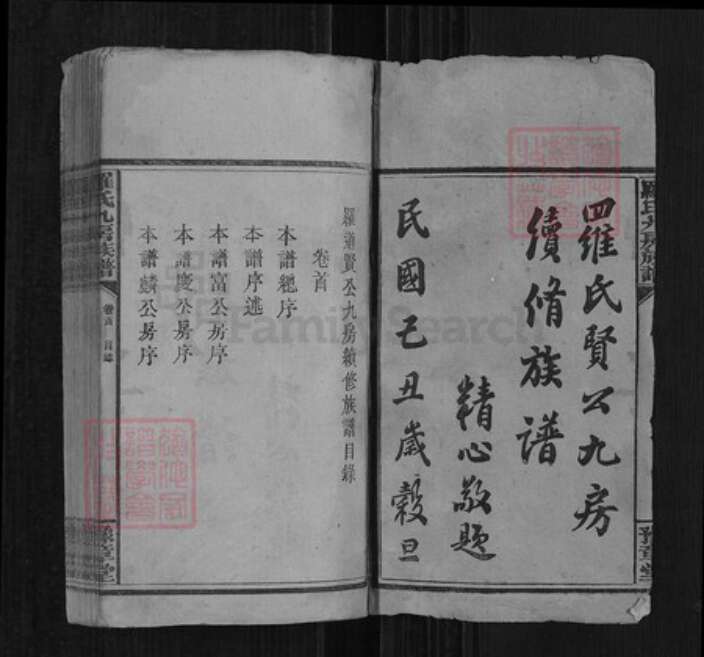 四羅氏賢公九房
續脩族譜
精心敬題
民國己丑歲穀旦
羅道賢公九房續修族譜目錄
卷首
本譜總序
本譜序述
本譜富公房序
本譜慶公房序
本譜麟公房序
羅氏九房族譜
卷首 目錄
豫章堂
羅氏九房族譜
豫章堂
FamilySearch